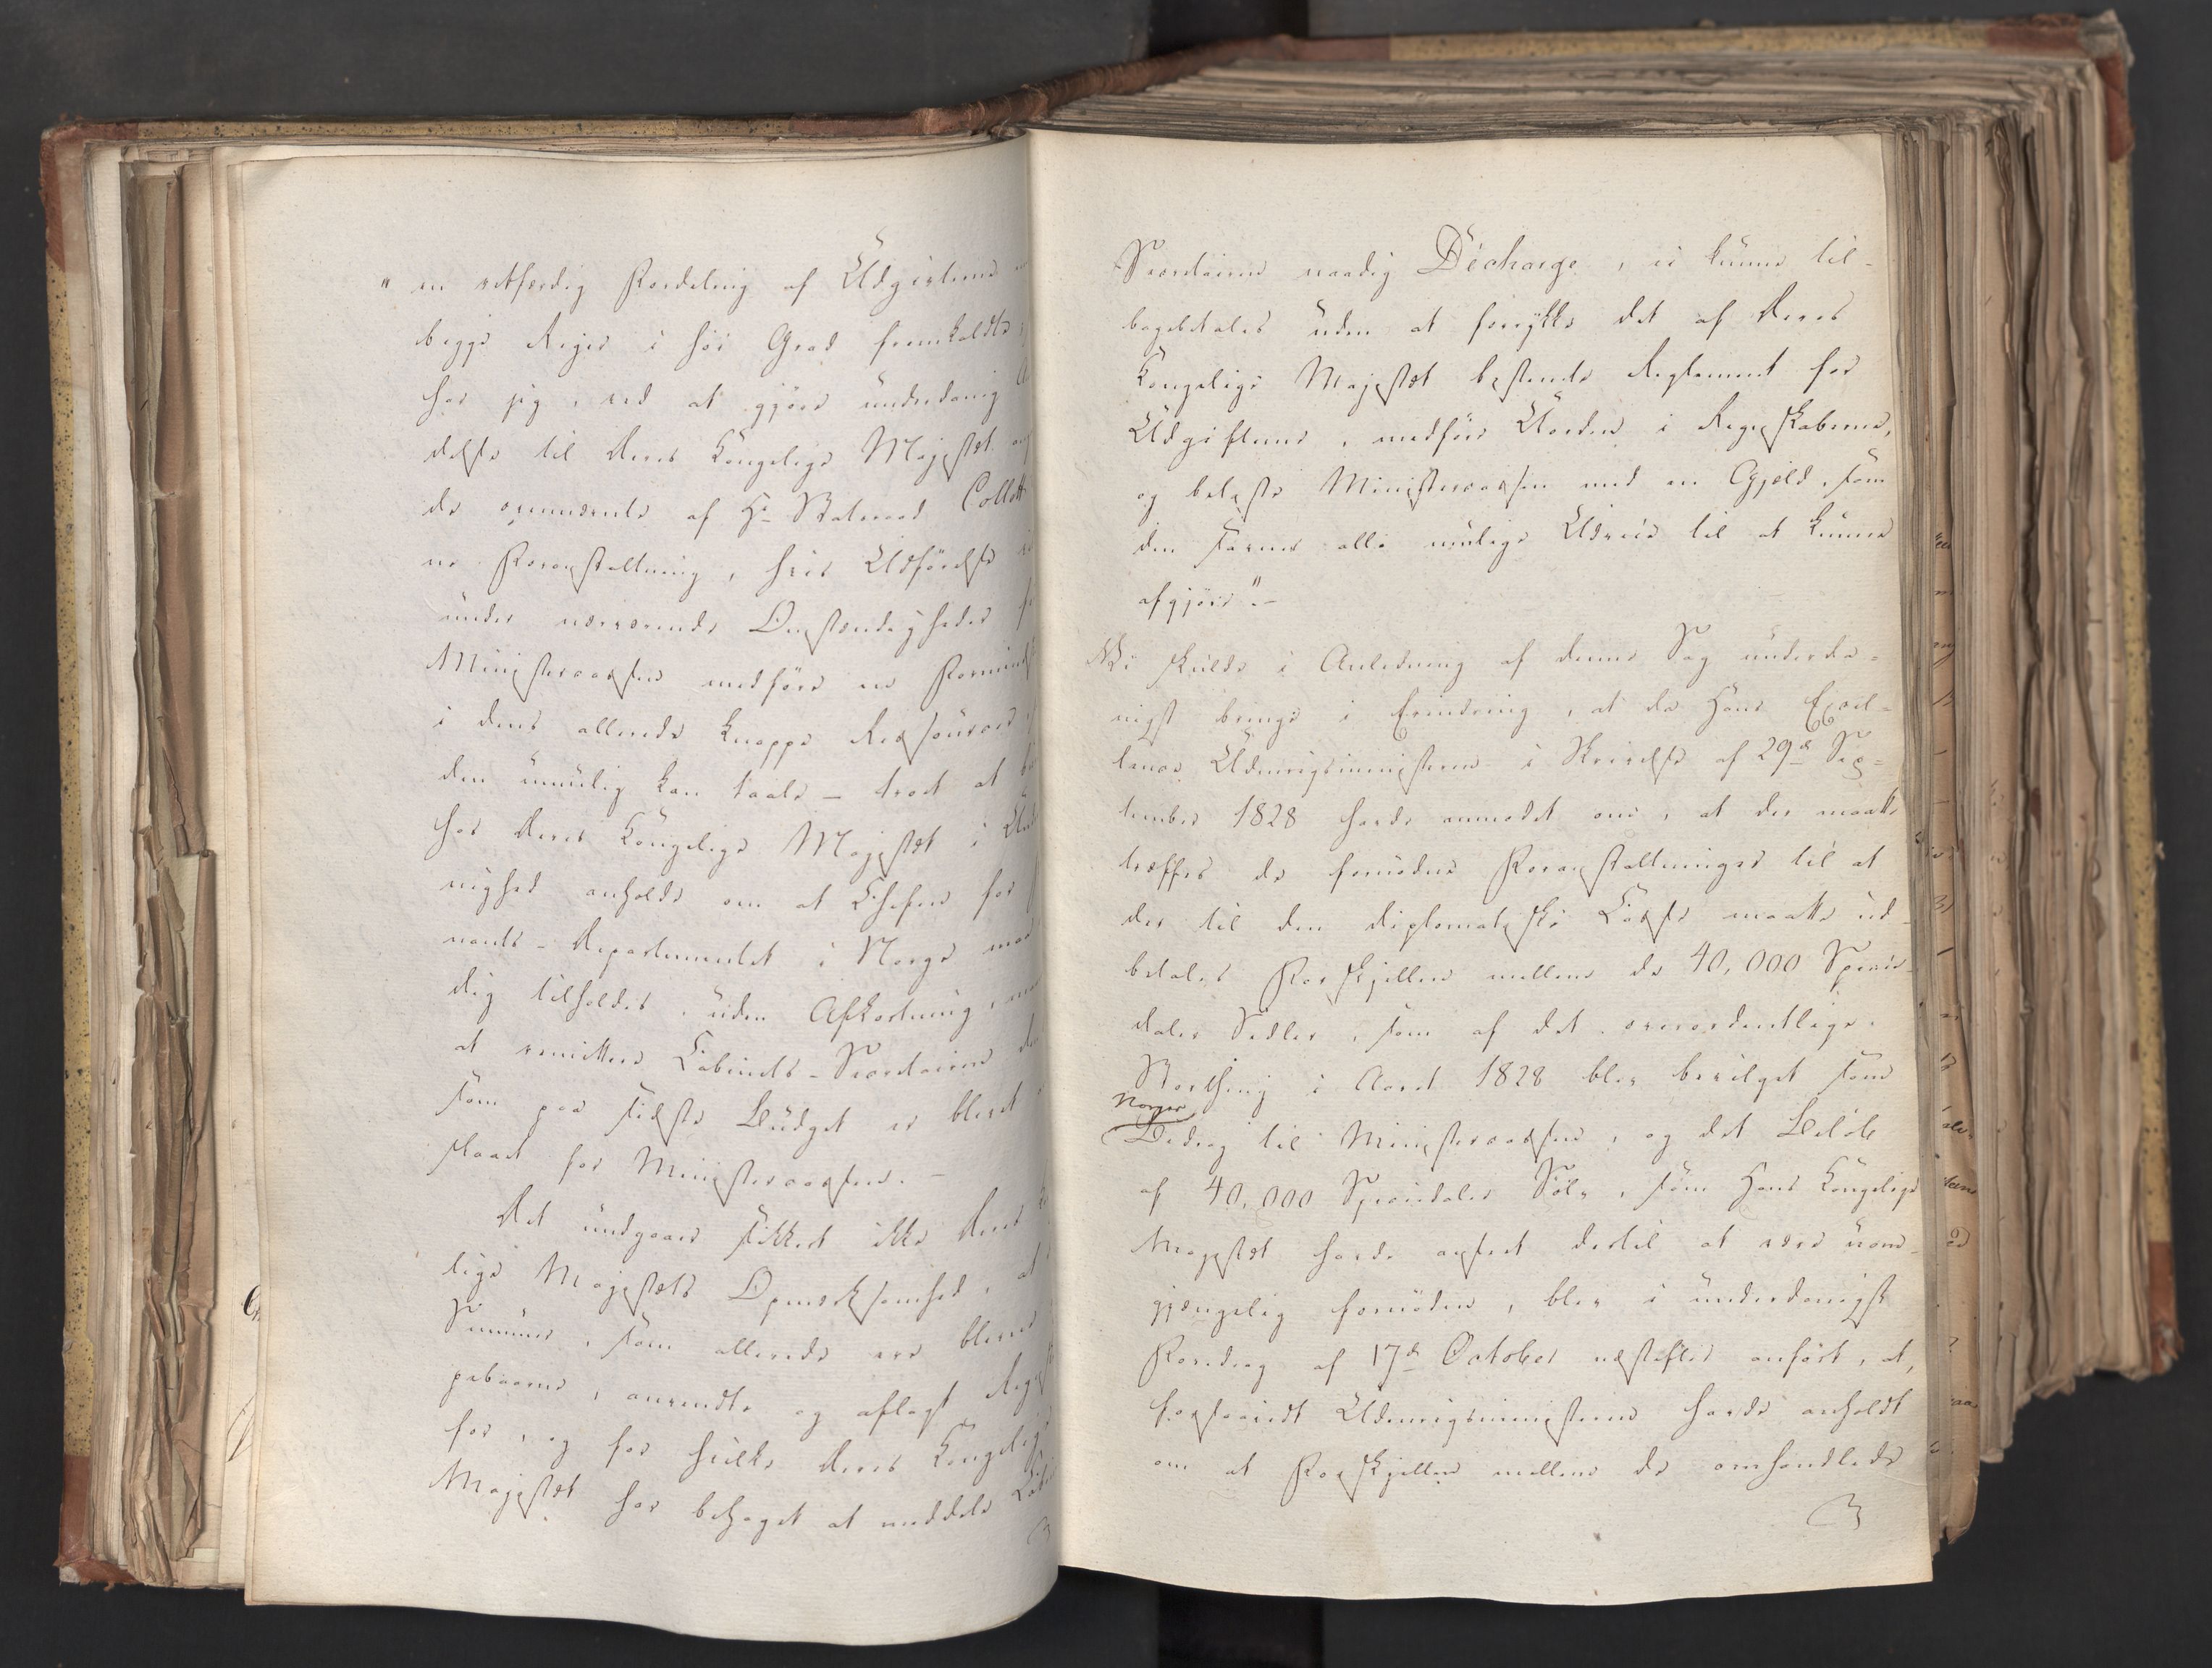 " en retfærdig Fordeling af Udgifterne
begge Riger i høi Grad fremkaldte
har jeg, ved at gjøre underdanig
delse til Deres Kongelige Majestæt
de ommeldte af Hr Statsraad Collett
ne Foranstaltning, hvis Udførelse
under nærværende Omstændigheder
Ministercassen medføre en Formind
i dens allerede knappe Ressourcer
den umulig kan taale – troet at
hos Deres Kongelige Majestæt i Und
nighed anholde om at Chefen for
nants-Departementet i Norge maa
dig tilholdes, uden Afkortning,
at remittere Cabinets-Secretairen
som paa sidste Budget er blevet
slaaet for Ministercassen. –
Det undgaaer sikkert ikke Deres
lige Majestæts Opmærksomhed, at
Summer, som allerede ere blevne
pebaarne, anvendte og aflagt Reg
for, og for hvilke Deres Kongelige
Majestæt har behaget at meddele Cabi
Secretairen naadig Décharge, ei kunne til-
bagebetales uden at forrykke det af Deres
Kongelige Majestæt bestemte Reglement for
Udgifterne, medføre Uorden i Regnskaberne,
og belæsse Ministercassen med en Gjeld, som
den savner alle mulige Udveie til at kunne
afgjøre". –
Vi skulde i Anledning af denne Sag underda-
nigst bringe i Erindring, at da Hans Excel-
lence Udenrigsministeren i Skrivelse af 29de Sep-
tember 1828 havde anmodet om, at der maatte
træffes de fornødne Foranstaltninger til at
der til den diplomatiske Casse maatte ud-
betales Forskjellen mellem de 40,000 Specie-
daler Sedler, som af det overordentlige
Storthing i Aaret 1828 blev bevilget som
Norges
Bidrag til Ministercassen, og det Beløb
af 40,000 Speciedaler Sølv, som Hans Kongelige
Majestæt havde anseet dertil at være uom-
gjængelig fornøden, blev i underdanigst
Foredrag af 17de October næstefter anført, at,
forsaavidt Udenrigsministeren havde anholdt
om at Forskjellen mellem de omhandlede